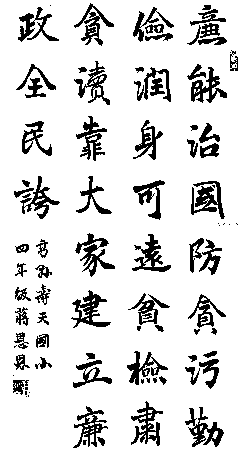 廉能治國防貪污勤
儉润身可遠貧檢肅
貪渎靠大家建立廉
政全民誇
高縣壽天國小
四年級蔣恩